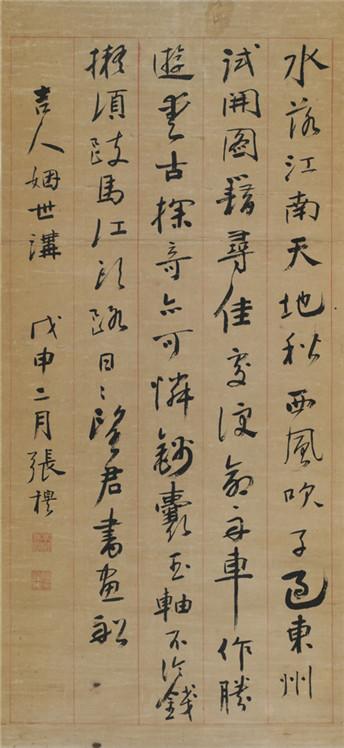 水落江南天地秋西風吹子過東州
試開圖籍尋佳處便命舟車作勝
遊愛古探奇亦可憐錦囊玉軸不論錢
擬須歇馬江頭路日々望君書畫船
吉人姻世講 戊申二月張